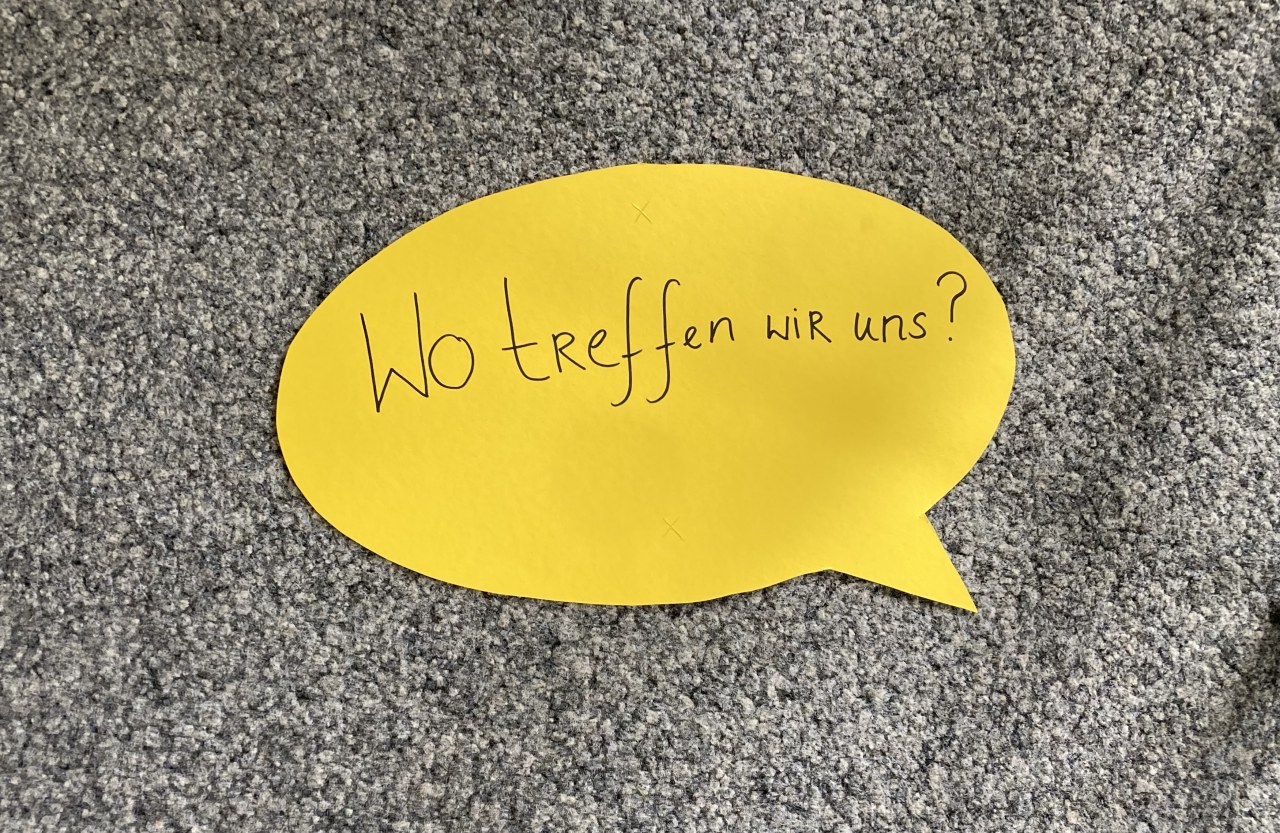 Wo treffen wir uns?